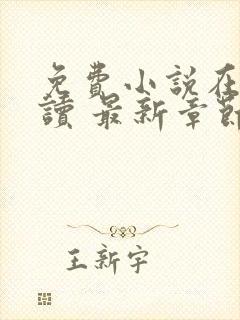 免費小説在
讀 最新章節
王新宇